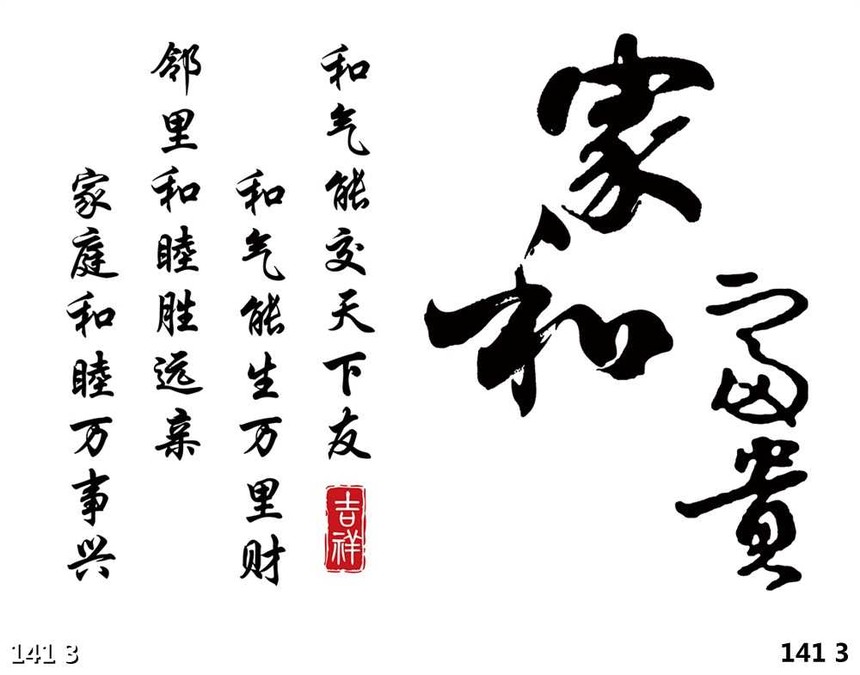 家和
富贵
和气能交天下友
吉祥
和气能生万里财
邻里和睦胜远亲
家庭和睦万事兴
141 3
141 3